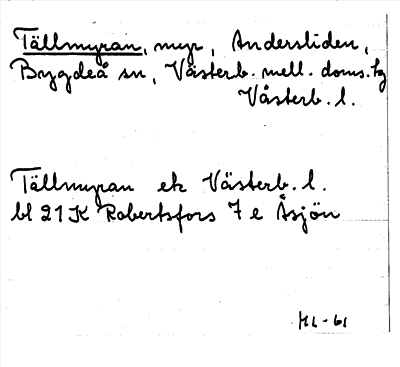 Tällmyran, myr, Andersliden,
Bygdeå sn, Västerb. mell. doms. hg
Västerb. l.
Tällmyran ek Västerb. l.
bl 21 K Robertsfors 7 e Åsjön
HL-61